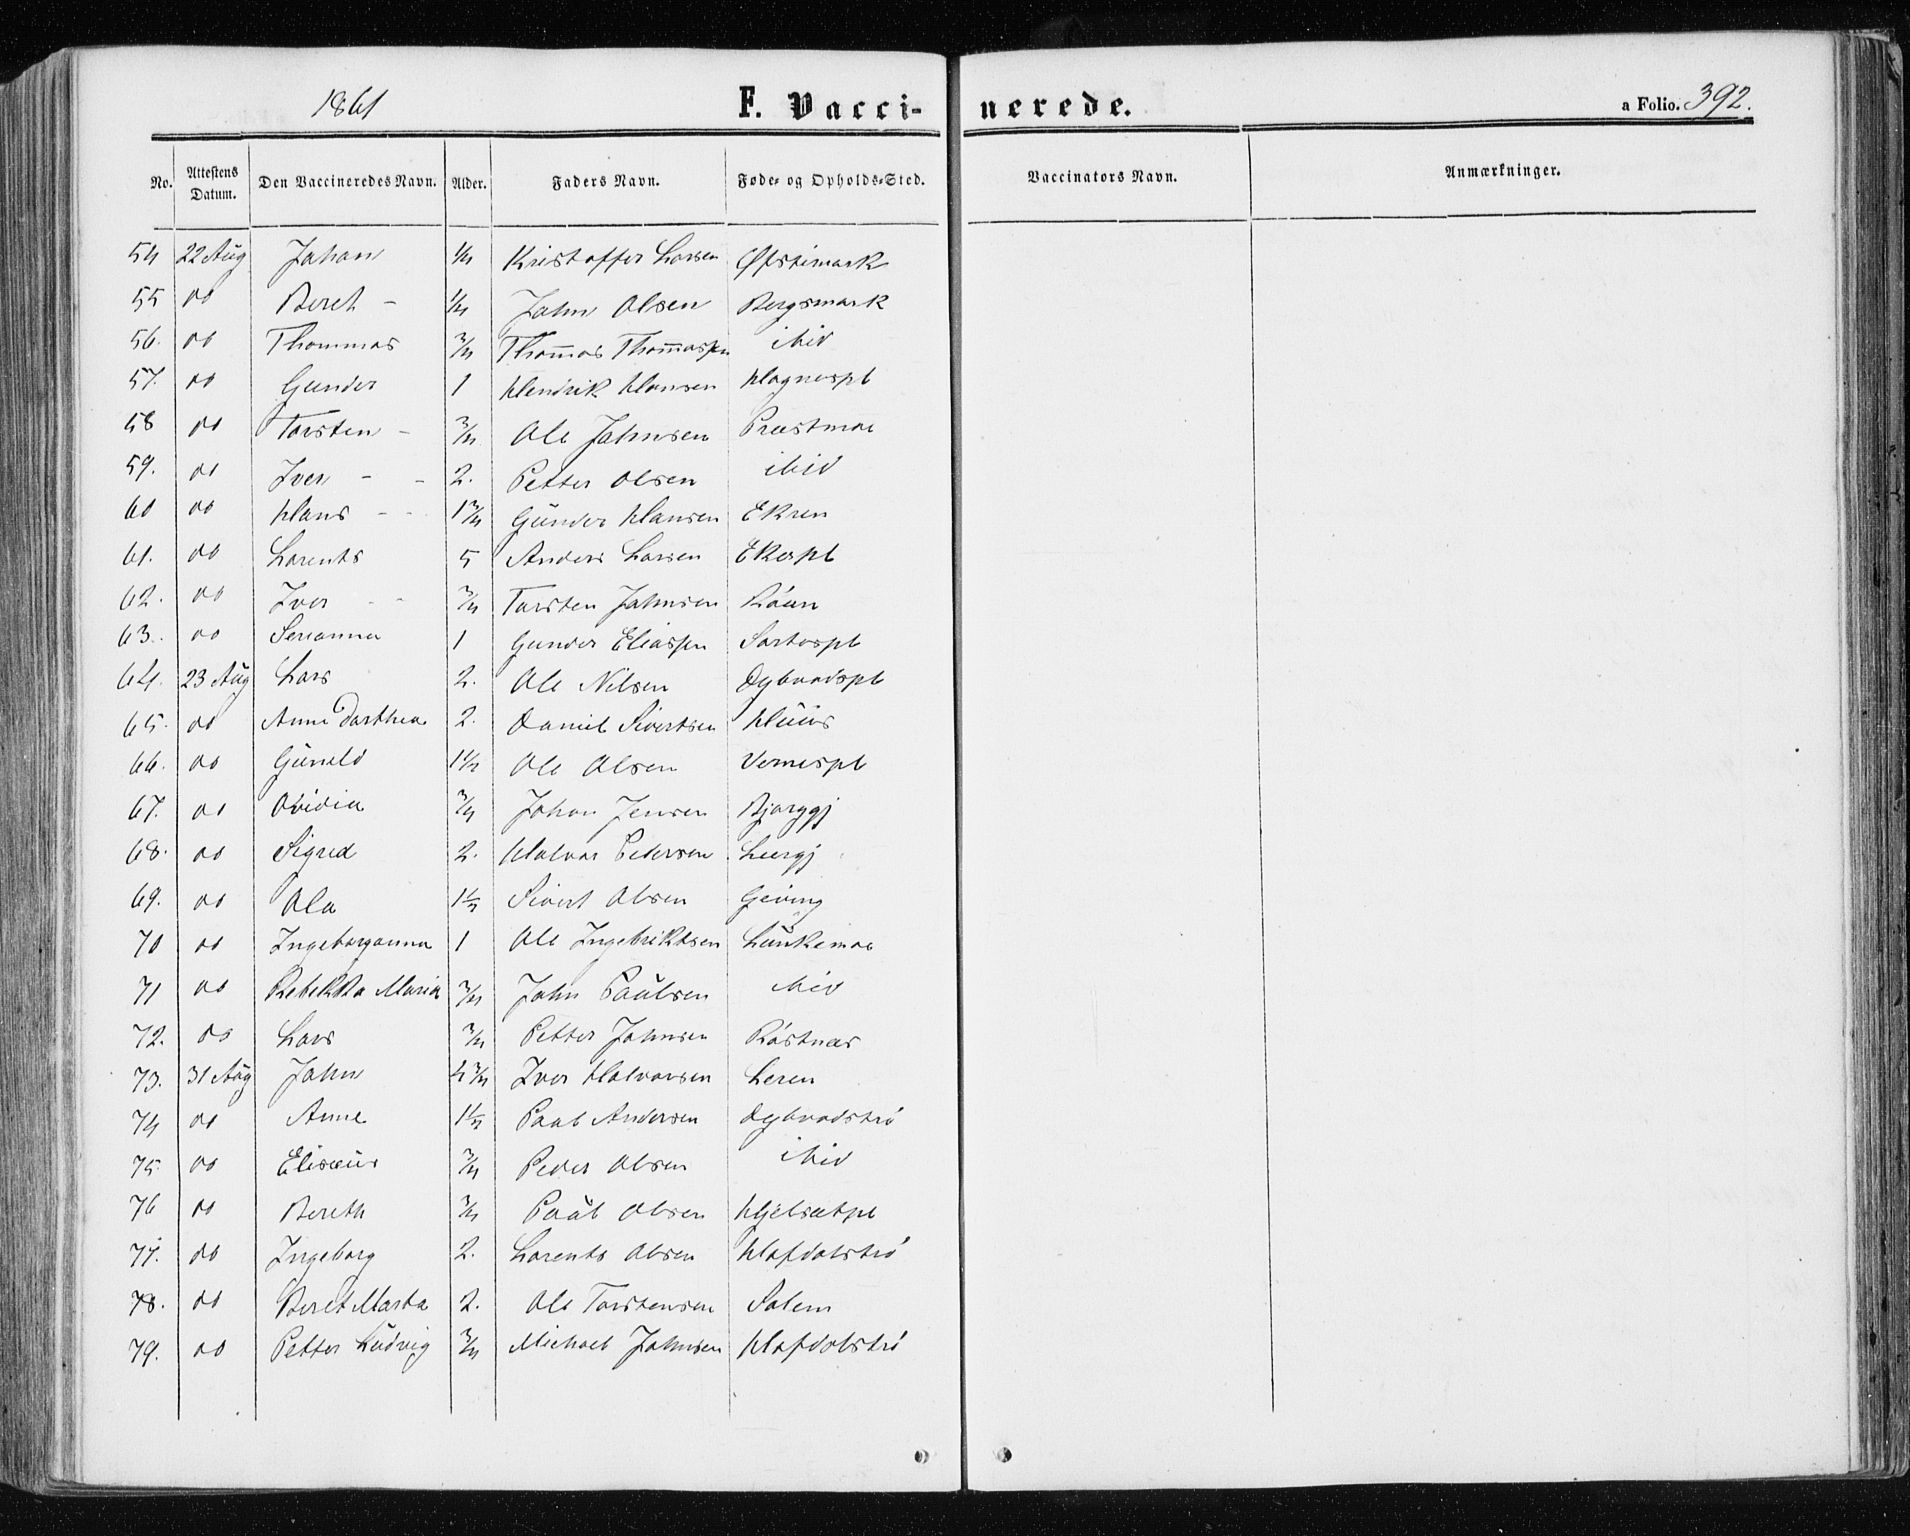 1861 F. Vacci- nerede. a Folio. 392.
No. Attestens Datum. Den Vaccineredes Navn. Alder. Faders Navn. Føde- og Opholds-Sted. Vaccinators Navn. Anmærkninger.
54 22 Aug Johan Kristoffer Larsen Øfstimark
55 do Beret - 1/2 John Olsen Bergsmark
56. do Thommas 3/4 Thom̄as Thom̄assen ibid
57. do Gunder 1 Hendrik Hansen Hognespl
58 do Torsten - 3/4 Ole Johnsen Præstmoe
59. do Iver - - 2. Petter Olsen ibid
60 do Hans - - 1 3/4 Gunder Hansen Ekren
61. do Lorents 5 Anders Larsen Ekerpl
62. do Iver - - 3/4 Torsten Johnsen Röen
63. do Serianna 1 Gunder Eliassen Sortespl
64. 23 Aug Lars 2. Ole Nilsen Dybvadspl
65. do Anne Dorthea 2. Daniel Sivertsen Huus
66. do Guneld 1 1/2 Ole Olsen Vernespl
67. do Ovidia 3/4 Johan Jensen Bjorggj
68. do Sigred 2. Halvor Pedersen Leergj
69. do Ola 1 1/2 Sivert Olsen Geving
70 do Ingeborganna 1 Ole Ingebriktsen Lunkemoe
71 do Rebekka Maria 3/4 John Paulsen ibid
72. do Lars 3/4 Petter Johnsen Röstnæs
73. 31 Aug John 3/4 Iver Halvorsen Leren
74 do Anne 1 1/2 Paal Andersen Dybvadströ
75 do Elisæus 3/4 Peder Olsen ibid
76 do Bereth 3/4 Paul Olsen Hjelsætpl
77. do Ingeborg 2. Lorents Olsen Hofdalströ
78. do Beret Marta 2. Ole Torstensen Solem
79. do Petter Ludvig 3/4 Michael Johnsen Hofdolströ